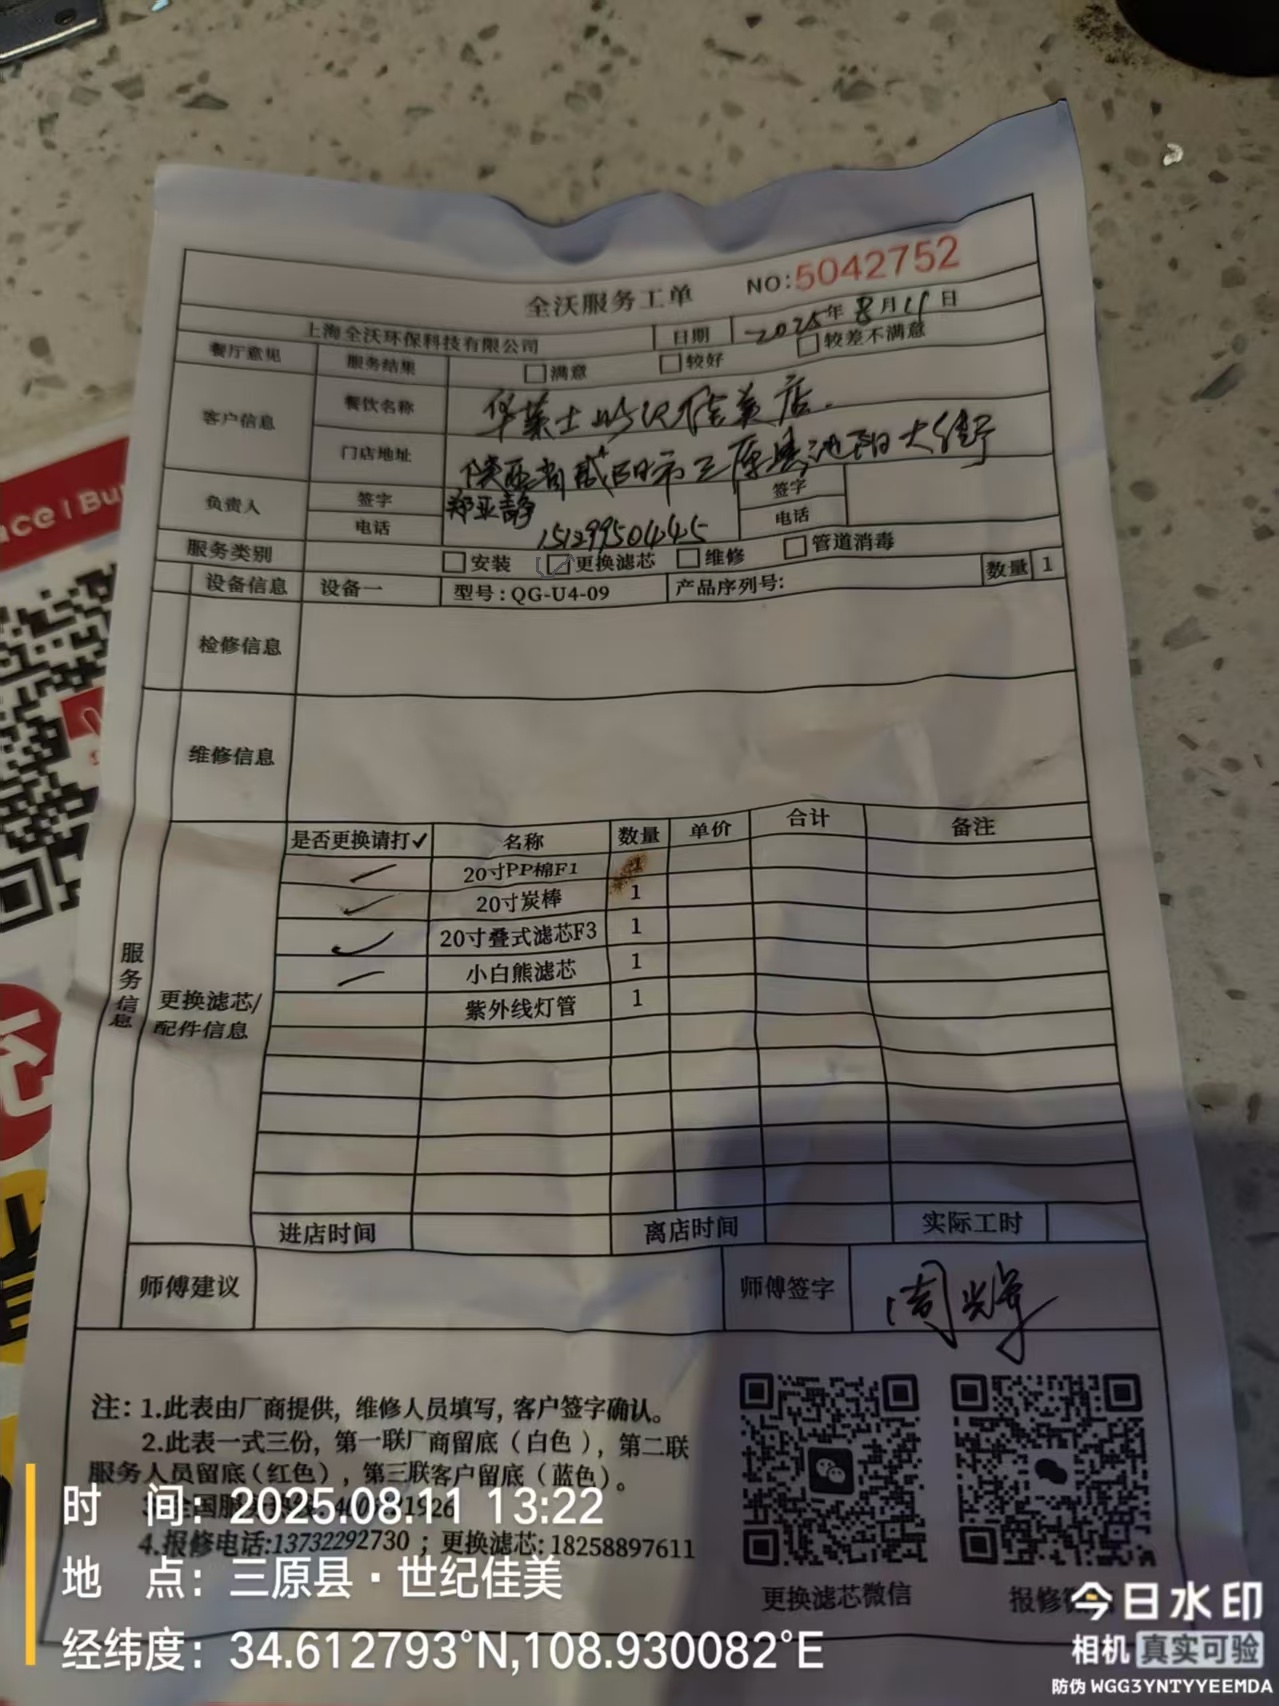 全沃服务工单
NO:5042752
上海全沃环保科技有限公司 日期 2025年8月11日
餐厅意见 服务结果 □满意 □较好 □较差不满意
客户信息 餐饮名称 华莱士世纪佳美店.
门店地址 陕西省咸阳市三原县池阳大街
负责人 签字 郑亚静 签字
电话 15129950445 电话
服务类别 □安装 ☑更换滤芯 □维修 □管道消毒
设备信息 设备一 型号:QG-U4-09 产品序列号: 数量 1
检修信息
维修信息
服务信息
更换滤芯/
配件信息
是否更换请打✓ 名称 数量 单价 合计 备注
✓ 20寸PP棉F1 1
✓ 20寸炭棒 1
✓ 20寸叠式滤芯F3 1
✓ 小白熊滤芯 1
紫外线灯管 1
进店时间 离店时间 实际工时
师傅建议 师傅签字 周辉
注: 1.此表由厂商提供, 维修人员填写, 客户签字确认。
2.此表一式三份, 第一联厂商留底(白色), 第二联
服务人员留底(红色), 第三联客户留底(蓝色)。
4.报修电话:13732292730 ; 更换滤芯: 18258897611
更换滤芯微信
报修微
时 间: 2025.08.11 13:22
地 点: 三原县·世纪佳美
经纬度: 34.612793°N,108.930082°E
今日水印
相机 真实可验
防伪 WGG3YNTYYEEMDA